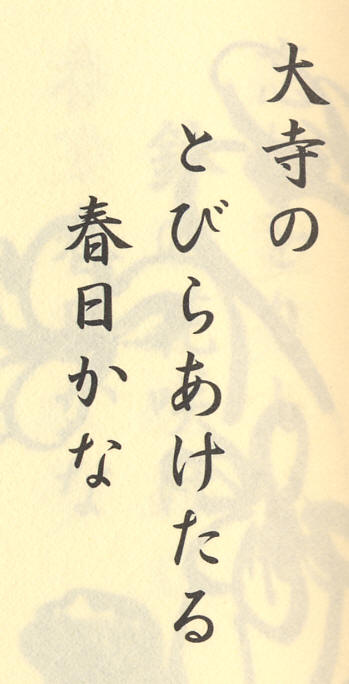 大寺の
とびらあけたる
春日かな